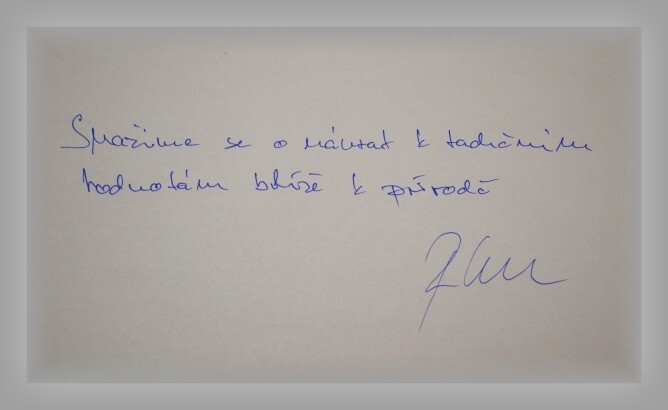 Snažíme se o návrat k tradičním
hodnotám blíže k přírodě